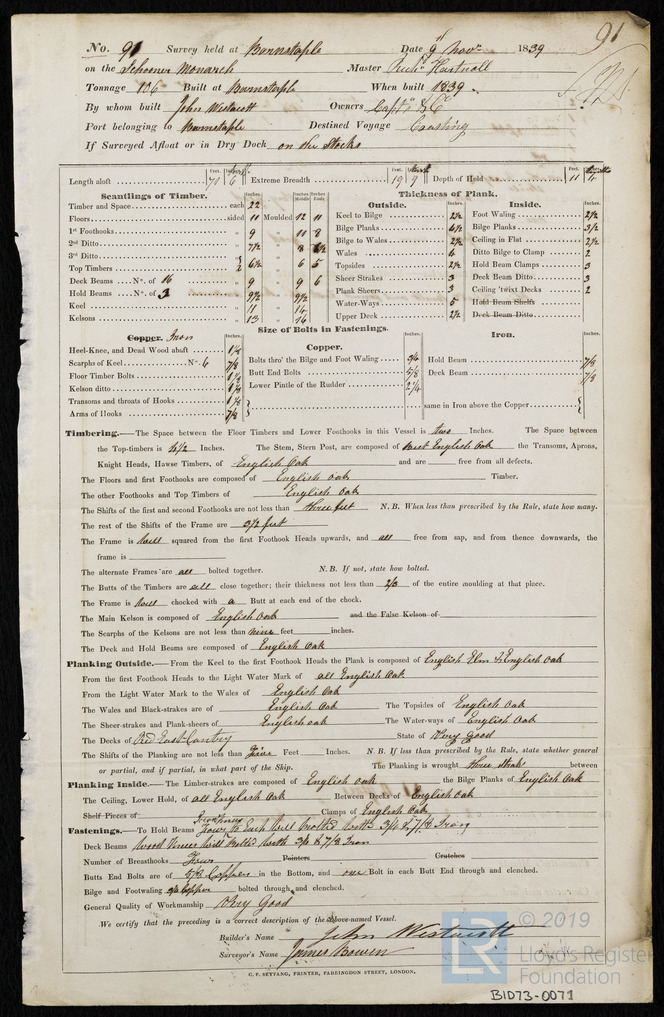 91
No. 91 Survey held at Barnstaple Date 9th Novr 1839
on the Schooner Monarch Master Richd Hartnoll
Tonnage 106 Built at Barnstaple When built 1839.
By whom built John Westacott Owners Captn & Co
Port belonging to Barnstaple Destined Voyage Coasting
If Surveyed Afloat or in Dry Dock on the Stocks
Length aloft 70 6 Extreme Breadth 19 9 Depth of Hold 11 4
Scantlings of Timber. Thickness of Plank.
Outside. Inside.
Timber and Space each 22
Floors sided 11 Moulded 12 11
1st Foothooks 9 11 8
2nd Ditto 7½ 8 6½
3rd Ditto
Top Timbers 6½ 6 5
Deck Beams No. of 16 9 9 6
Hold Beams No. of 3 9½ 9½
Keel 11 14
Kelsons 13 16
Keel to Bilge 2½ Foot Waling 2½
Bilge Planks 6½ Bilge Planks 3½
Bilge to Wales 2½ Ceiling in Flat 2½
Wales 6 Ditto Bilge to Clamp 2
Topsides 2½ Hold Beam Clamps 3
Sheer Strakes 3 Deck Beam Ditto 3
Plank Sheers 3 Ceiling 'twixt Decks 2
Water-Ways 5 Hold Beam Shelfs
Upper Deck 2½ Deck Beam Ditto
Size of Bolts in Fastenings.
Copper. Iron Copper. Iron.
Heel-Knee, and Dead Wood abaft 1⅛
Scarphs of Keel No. 6 7/8
Floor Timber Bolts
Kelson ditto 1⅛
Transoms and throats of Hooks 1⅛
Arms of Hooks 7/8
Bolts thro' the Bilge and Foot Waling 5/8
Butt End Bolts 5/8
Lower Pintle of the Rudder 2¼
Hold Beam 7/8
Deck Beam 7/8
same in Iron above the Copper
Timbering.—The Space between the Floor Timbers and Lower Foothooks in this Vessel is two Inches. The Space between
the Top-timbers is 4½ Inches. The Stem, Stern Post, are composed of best English Oak the Transoms, Aprons,
Knight Heads, Hawse Timbers, of English Oak and are free from all defects.
The Floors and first Foothooks are composed of English oak Timber.
The other Foothooks and Top Timbers of English oak
The Shifts of the first and second Foothooks are not less than three feet N.B. When less than prescribed by the Rule, state how many.
The rest of the Shifts of the Frame are 3½ feet
The Frame is well squared from the first Foothook Heads upwards, and all free from sap, and from thence downwards, the
frame is
The alternate Frames are all bolted together. N.B. If not, state how bolted.
The Butts of the Timbers are all close together; their thickness not less than 2/3 of the entire moulding at that place.
The Frame is well chocked with a Butt at each end of the chock.
The Main Kelson is composed of English Oak and the False Kelson of
The Scarphs of the Kelsons are not less than nine feet inches.
The Deck and Hold Beams are composed of English Oak
Planking Outside.—From the Keel to the first Foothook Heads the Plank is composed of English Elm & English Oak
From the first Foothook Heads to the Light Water Mark of all English Oak
From the Light Water Mark to the Wales of English Oak
The Wales and Black-strakes are of English Oak The Topsides of English Oak
The Sheer-strakes and Plank-sheers of English oak The Water-ways of English Oak
The Decks of Red East-Country State of Very good
The Shifts of the Planking are not less than five Feet Inches. N.B. If less than prescribed by the Rule, state whether general
or partial, and if partial, in what part of the Ship. The Planking is wrought three strake between
Planking Inside.—The Limber-strakes are composed of English oak the Bilge Planks of English Oak
The Ceiling, Lower Hold, of all English Oak Between Decks of English oak
Shelf Pieces of Clamps of English Oak
Fastenings.—To Hold Beams Iron Knees four to each well bolted with 3/4 & 7/8 Iron
Deck Beams Wood Knees well bolted with 3/4 & 7/8 Iron
Number of Breasthooks Four Pointers Crutches
Butts End Bolts are of 5/8 Copper in the Bottom, and one Bolt in each Butt End through and clenched.
Bilge and Footwaling 5/8 Copper bolted through and clenched.
General Quality of Workmanship Very Good
We certify that the preceding is a correct description of the above-named Vessel.
Builder's Name John Westacott
Surveyor's Name James Bowen
C. F. SEYFANG, PRINTER, FARRINGDON STREET, LONDON.
LR © 2019
Lloyd's Register
Foundation
BID73-0071